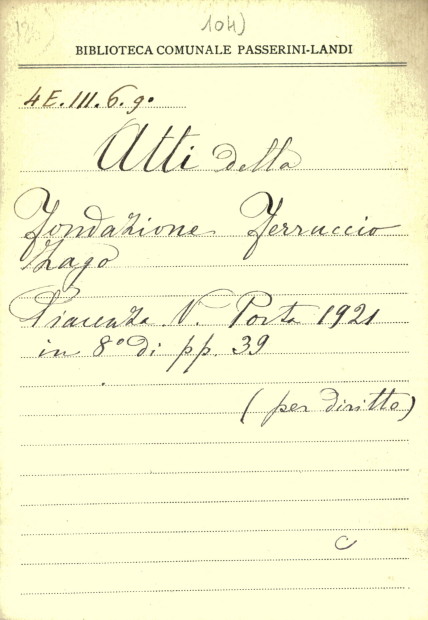 104)
BIBLIOTECA COMUNALE PASSERINI-LANDI
4E.III.6.9º
Atti della
Fondazione Ferruccio
Zago
Piacenza V. Porta 1921
in 8º di pp. 39
(per diritto)
C